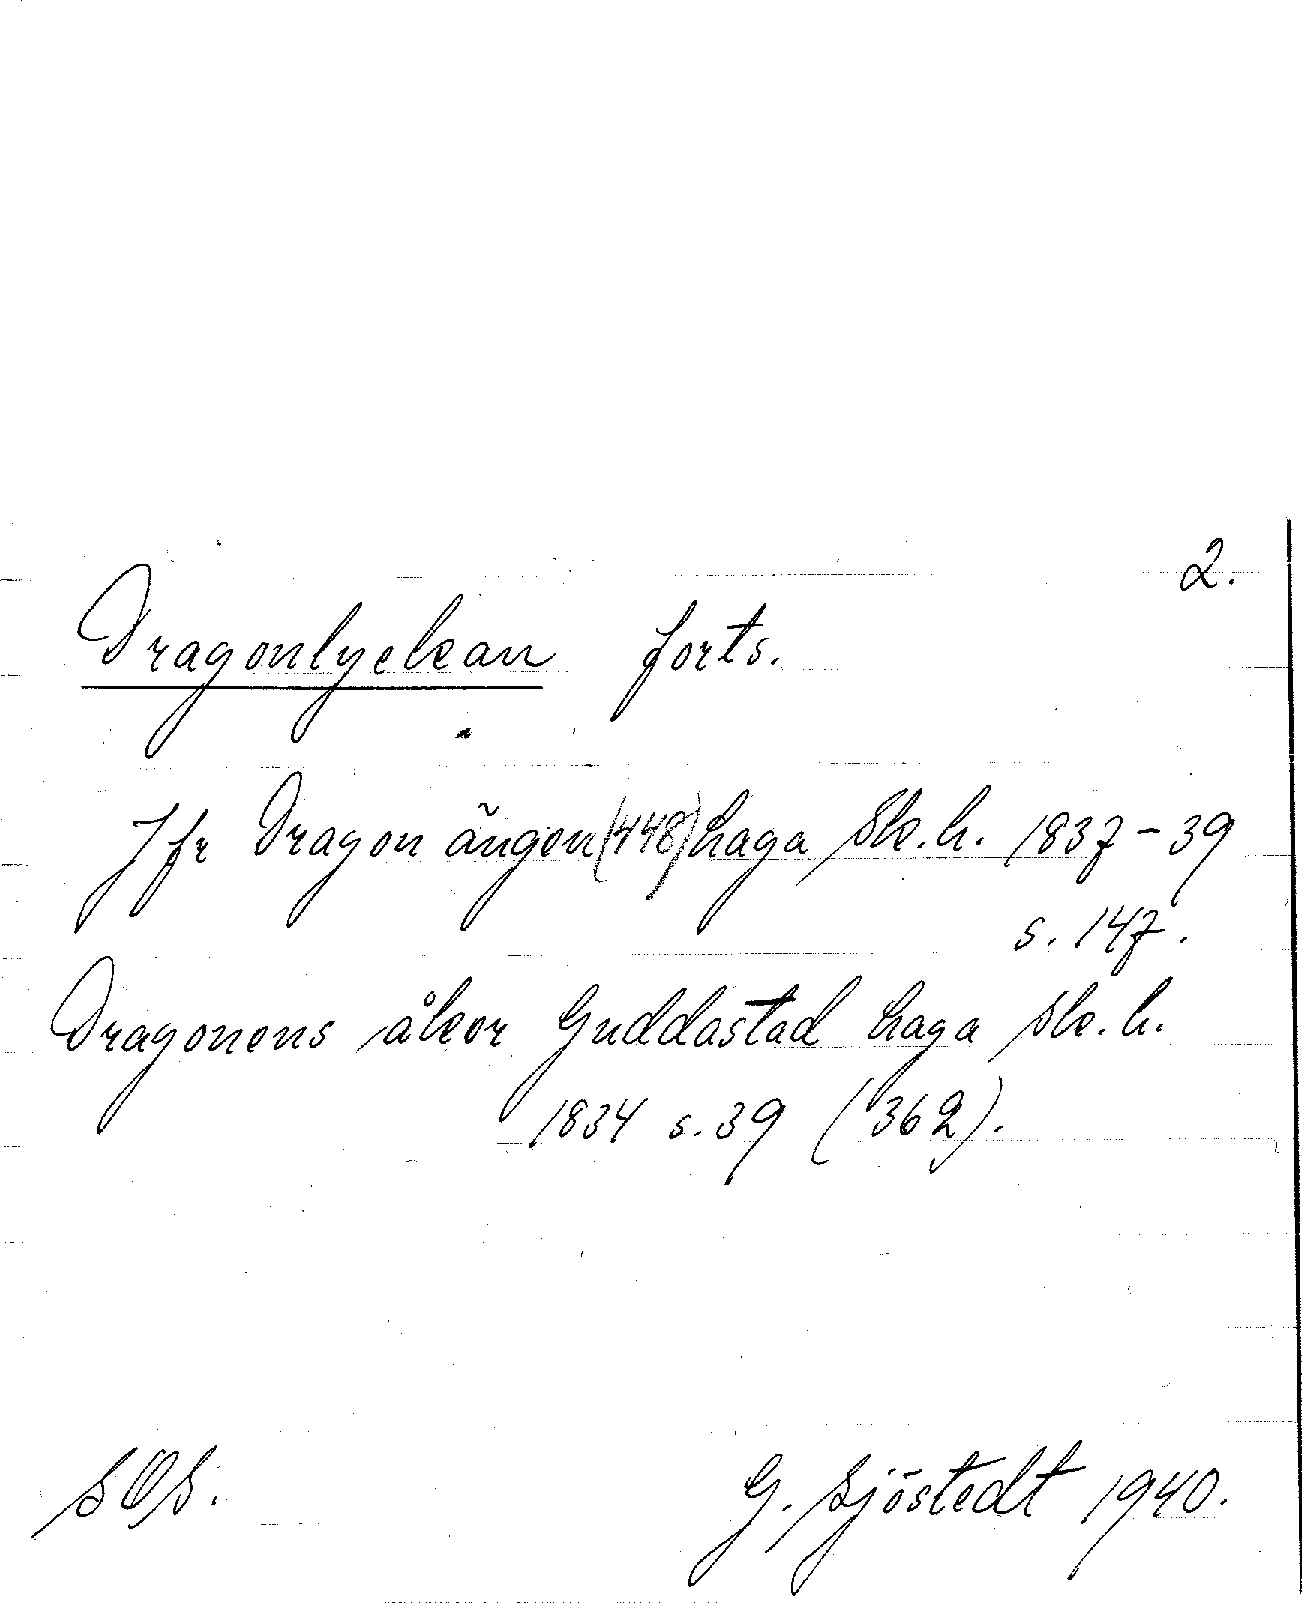 2.
Dragonlyckan forts.
Jfr Dragon ängen (448) haga Sk.h. 1837-39
s. 147.
Dragonens åker Guddastad haga Sk.h.
1834 s. 39 (362).
SOS. G. Sjöstedt 1940.